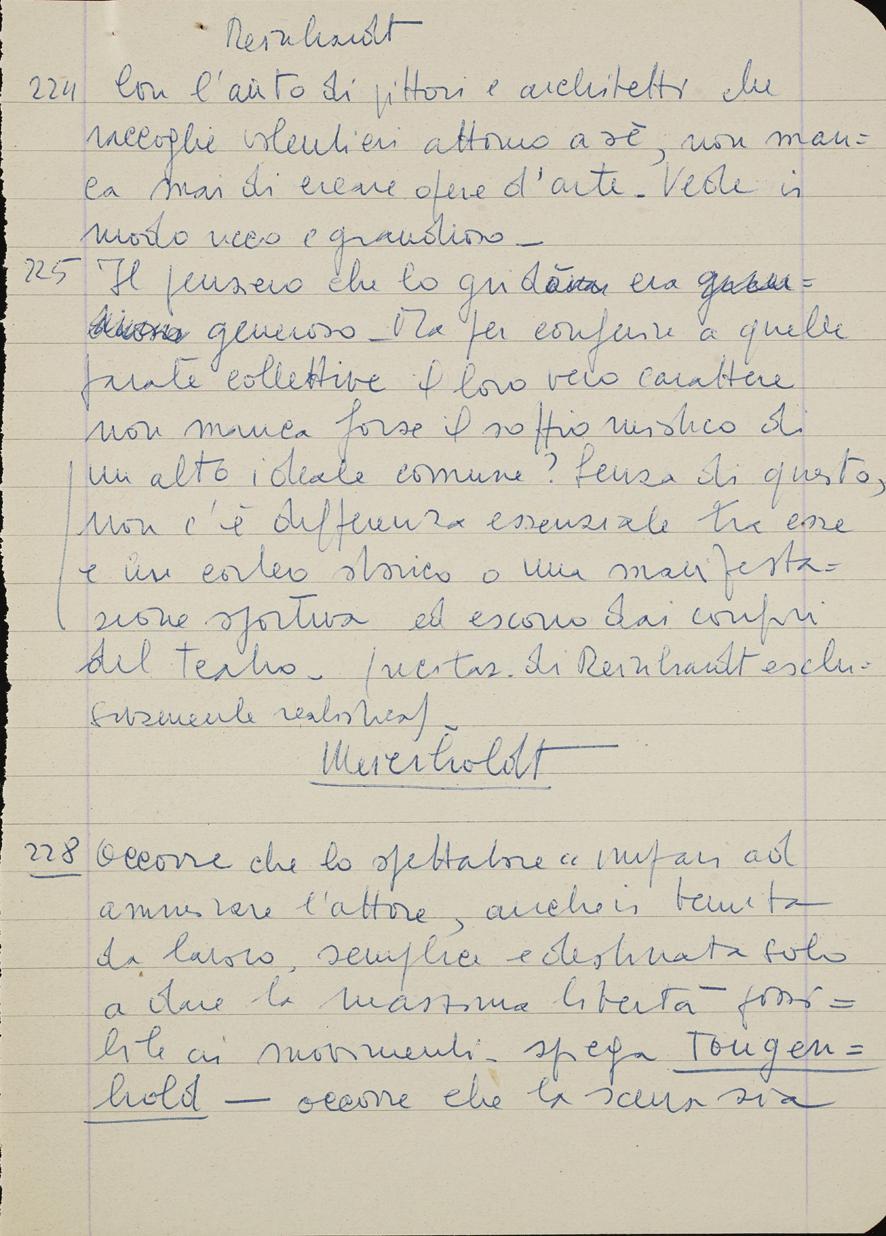 Reinhardt
224 Con l'aiuto di pittori e architetti che
raccoglie volentieri attorno a sè, non man=
ca mai di creare opere d'arte. Vede in
modo ricco e grandioso _
225 Il pensiero che lo guidava era
generoso _ Ma per conferire a quelle
parate collettive il loro vero carattere
non manca forse il soffio mistico di
un alto ideale comune? Senza di questo,
non c'è differenza essenziale tra esse
e un corteo storico o una manifesta=
zione sportiva ed escono dai confini
del teatro _ di Reinhardt esclu-
sivamente
Meierholdt
228 Occorre che lo spettatore " impari ad
ammirare l'attore, anche in tenuta
da lavoro, semplice e destinata solo
a dare la massima libertà possi=
bile ai movimenti _ spiega Tougen=
hold — occorre che la scena sia